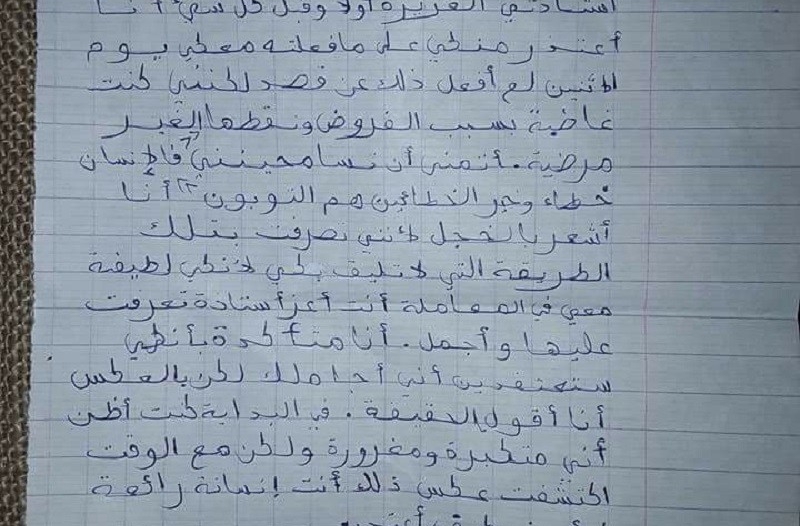 أستاذتي العزيزة أولا وقبل كل شيء أنا
أعتذر منكي على مافعلته معكي يوم
الإثنين لم أفعل ذلك عن قصد لكنني كنت
غاضبة بسبب الفروض ونقطها الغير
مرضية. أتمنى أن تسامحينني "فالإنسان
خطاء وخير الخطائين هم التوبون" أنا
أشعر بالخجل لأنني تصرفت بتلك
الطريقة التي لا تليق بكي لأنكي لطيفة
معي في المعاملة أنت أعز أستادة تعرفت
عليها وأجمل. أنا متأكدة بأنكي
ستعتقدين أني أجاملك لكن بالعكس
أنا أقول الحقيقة. في البداية كنت أظن
أني متكبرة ومغرورة ولكن مع الوقت
اكتشفت عكس ذلك أنت إنسانة رائعة